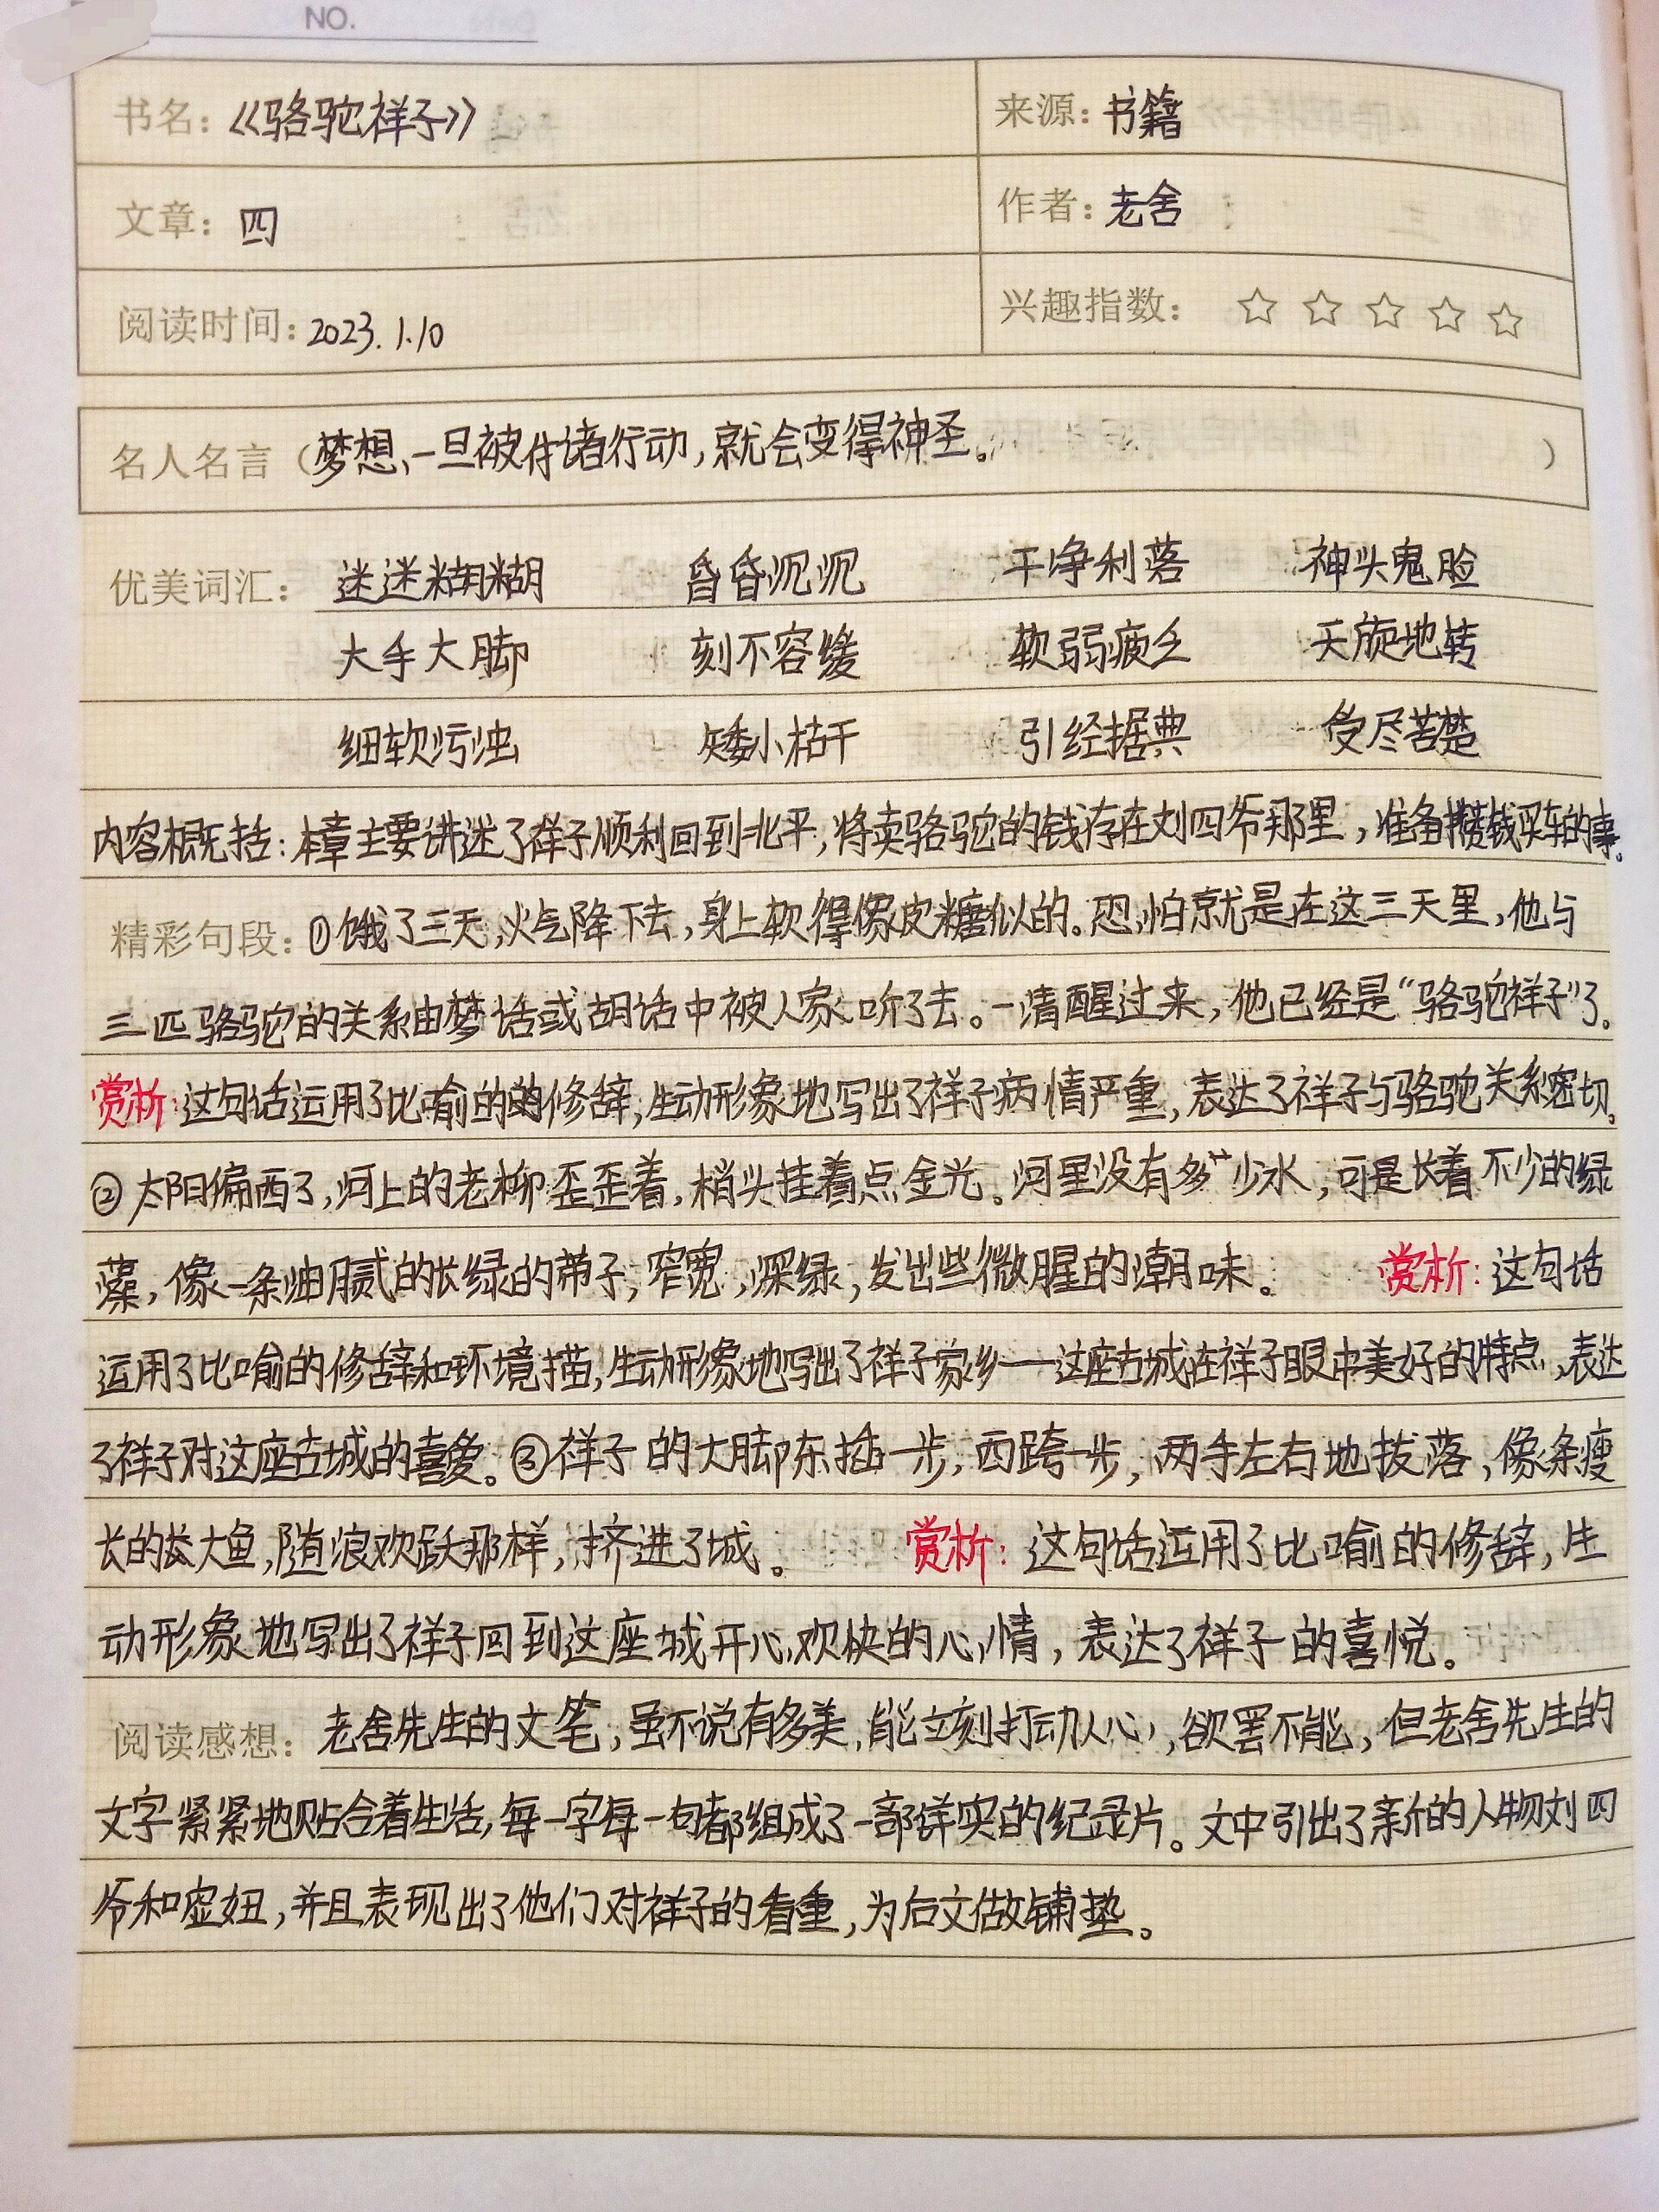 NO.
书名：《骆驼祥子》 来源：书籍
文章：四 作者：老舍
阅读时间：2023.1.10 兴趣指数：☆ ☆ ☆ ☆ ☆
名人名言（梦想，一旦被付诸行动，就会变得神圣。）
优美词汇：迷迷糊糊 昏昏沉沉 干净利落 神头鬼脸
大手大脚 刻不容缓 软弱疲乏 天旋地转
细软污浊 矮小枯干 引经据典 受尽苦楚
内容概括：本章主要讲述了祥子顺利回到北平，将卖骆驼的钱存在刘四爷那里，准备攒钱买车的事。
精彩句段：①饿了三天，火气降下去，身上软得像皮糖似的。恐怕就是在这三天里，他与
三匹骆驼的关系由梦话或胡话中被人家听了去。一清醒过来，他已经是“骆驼祥子”了。
赏析：这句话运用了比喻的的修辞，生动形象地写出了祥子病情严重，表达了祥子与骆驼关系密切。
②太阳偏西了，河上的老柳歪歪着，梢头挂着点金光。河里没有多少水，可是长着不少的绿
藻，像一条油腻的长绿的带子，窄宽，深绿，发出些微腥的潮味。 赏析：这句话
运用了比喻的修辞和环境描，生动形象地写出了祥子家乡——这座古城在祥子眼中美好的特点，表达
了祥子对这座古城的喜爱。③祥子的大脚东插一步，西跨一步，两手左右地拨落，像条瘦
长的长大鱼，随浪欢跃那样，挤进了城。 赏析：这句话运用了比喻的修辞，生
动形象地写出了祥子回到这座城开心，欢快的心情，表达了祥子的喜悦。
阅读感想：老舍先生的文笔，虽不说有多美，能立刻打动人心，欲罢不能，但老舍先生的
文字紧紧地贴合着生活，每一字每一句都组成了一部详实的纪录片。文中引出了新的人物刘四
爷和虚妞，并且表现出了他们对祥子的看重，为后文做铺垫。